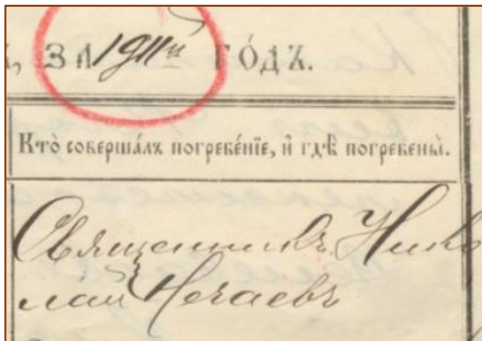 , ЗА 1911й ГО́ДЪ.
Кто̀ соверша́лъ погребе́нїе, и҆ гдѣ̀ погребены̀.
Священникъ Нико
лай Нечаевъ